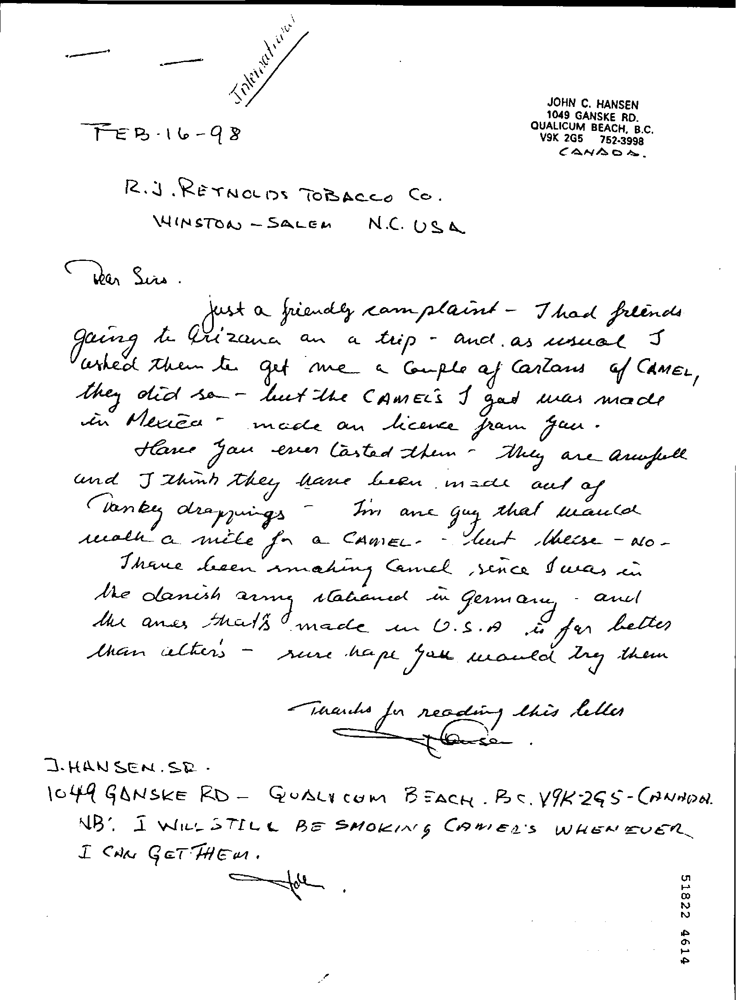 International
JOHN C. HANSEN
1049 GANSKE RD.
QUALICUM BEACH, B.C.
V9K 2G5 752-3998
CANADA.
FEB-16-98
R.J. REYNOLDS TOBACCO CO.
WINSTON-SALEM N.C. USA
Dear Sirs.
just a friendly complaint - I had freinds
going to Arizona on a trip - and as usual I
asked them to get me a couple of cartons of CAMEL,
they did so - but the CAMEL'S I got was made
in Mexico - made on licence from you.
Have you ever tasted them - they are awfull
and I think they have been made out of
Donkey droppings - I'm one guy that would
walk a mile for a CAMEL - but these - NO -
I have been smoking Camel, since I was in
the danish army stationed in Germany - and
the ones that's made in U.S.A is far better
than other's - sure hope you would try them
Thanks for reading this letter
J Hansen.
J. HANSEN. SR.
1049 GANSKE RD - QUALICUM BEACH. B.C. V9K-2G5 - CANADA.
NB: I WILL STILL BE SMOKING CAMEL'S WHEN EVER
I CAN GET THEM.
51822 4614